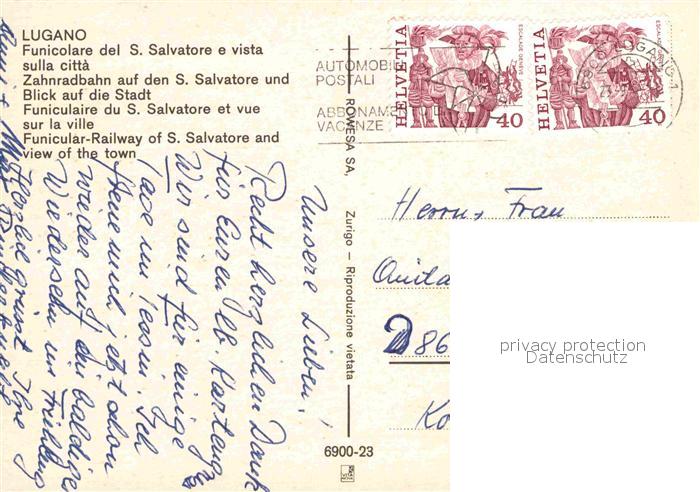 LUGANO
Funicolare del S. Salvatore e vista
sulla città
Zahnradbahn auf den S. Salvatore und
Blick auf die Stadt
Funiculaire du S. Salvatore et vue
sur la ville
Funicular-Railway of S. Salvatore and
view of the town
AUTOMOBILI
POSTALI
ABBONAMENTI
VACANZE
HELVETIA
ESCALADE GENÈVE
40
HELVETIA
40
6900 LUGANO 1
ROMESA SA, Zurigo – Riproduzione vietata
6900-23
Unsere Lieben!
Recht herzlichen Dank
für Euren lb. Kartengruss
Wir sind für einige
Tage im Tessin. Ich
freue mich jetzt schon
wieder auf ein baldiges
Wiedersehn im Frühling
Herzlich grüsst Ihre
Herrn, Frau
D 86
privacy protection
Datenschutz